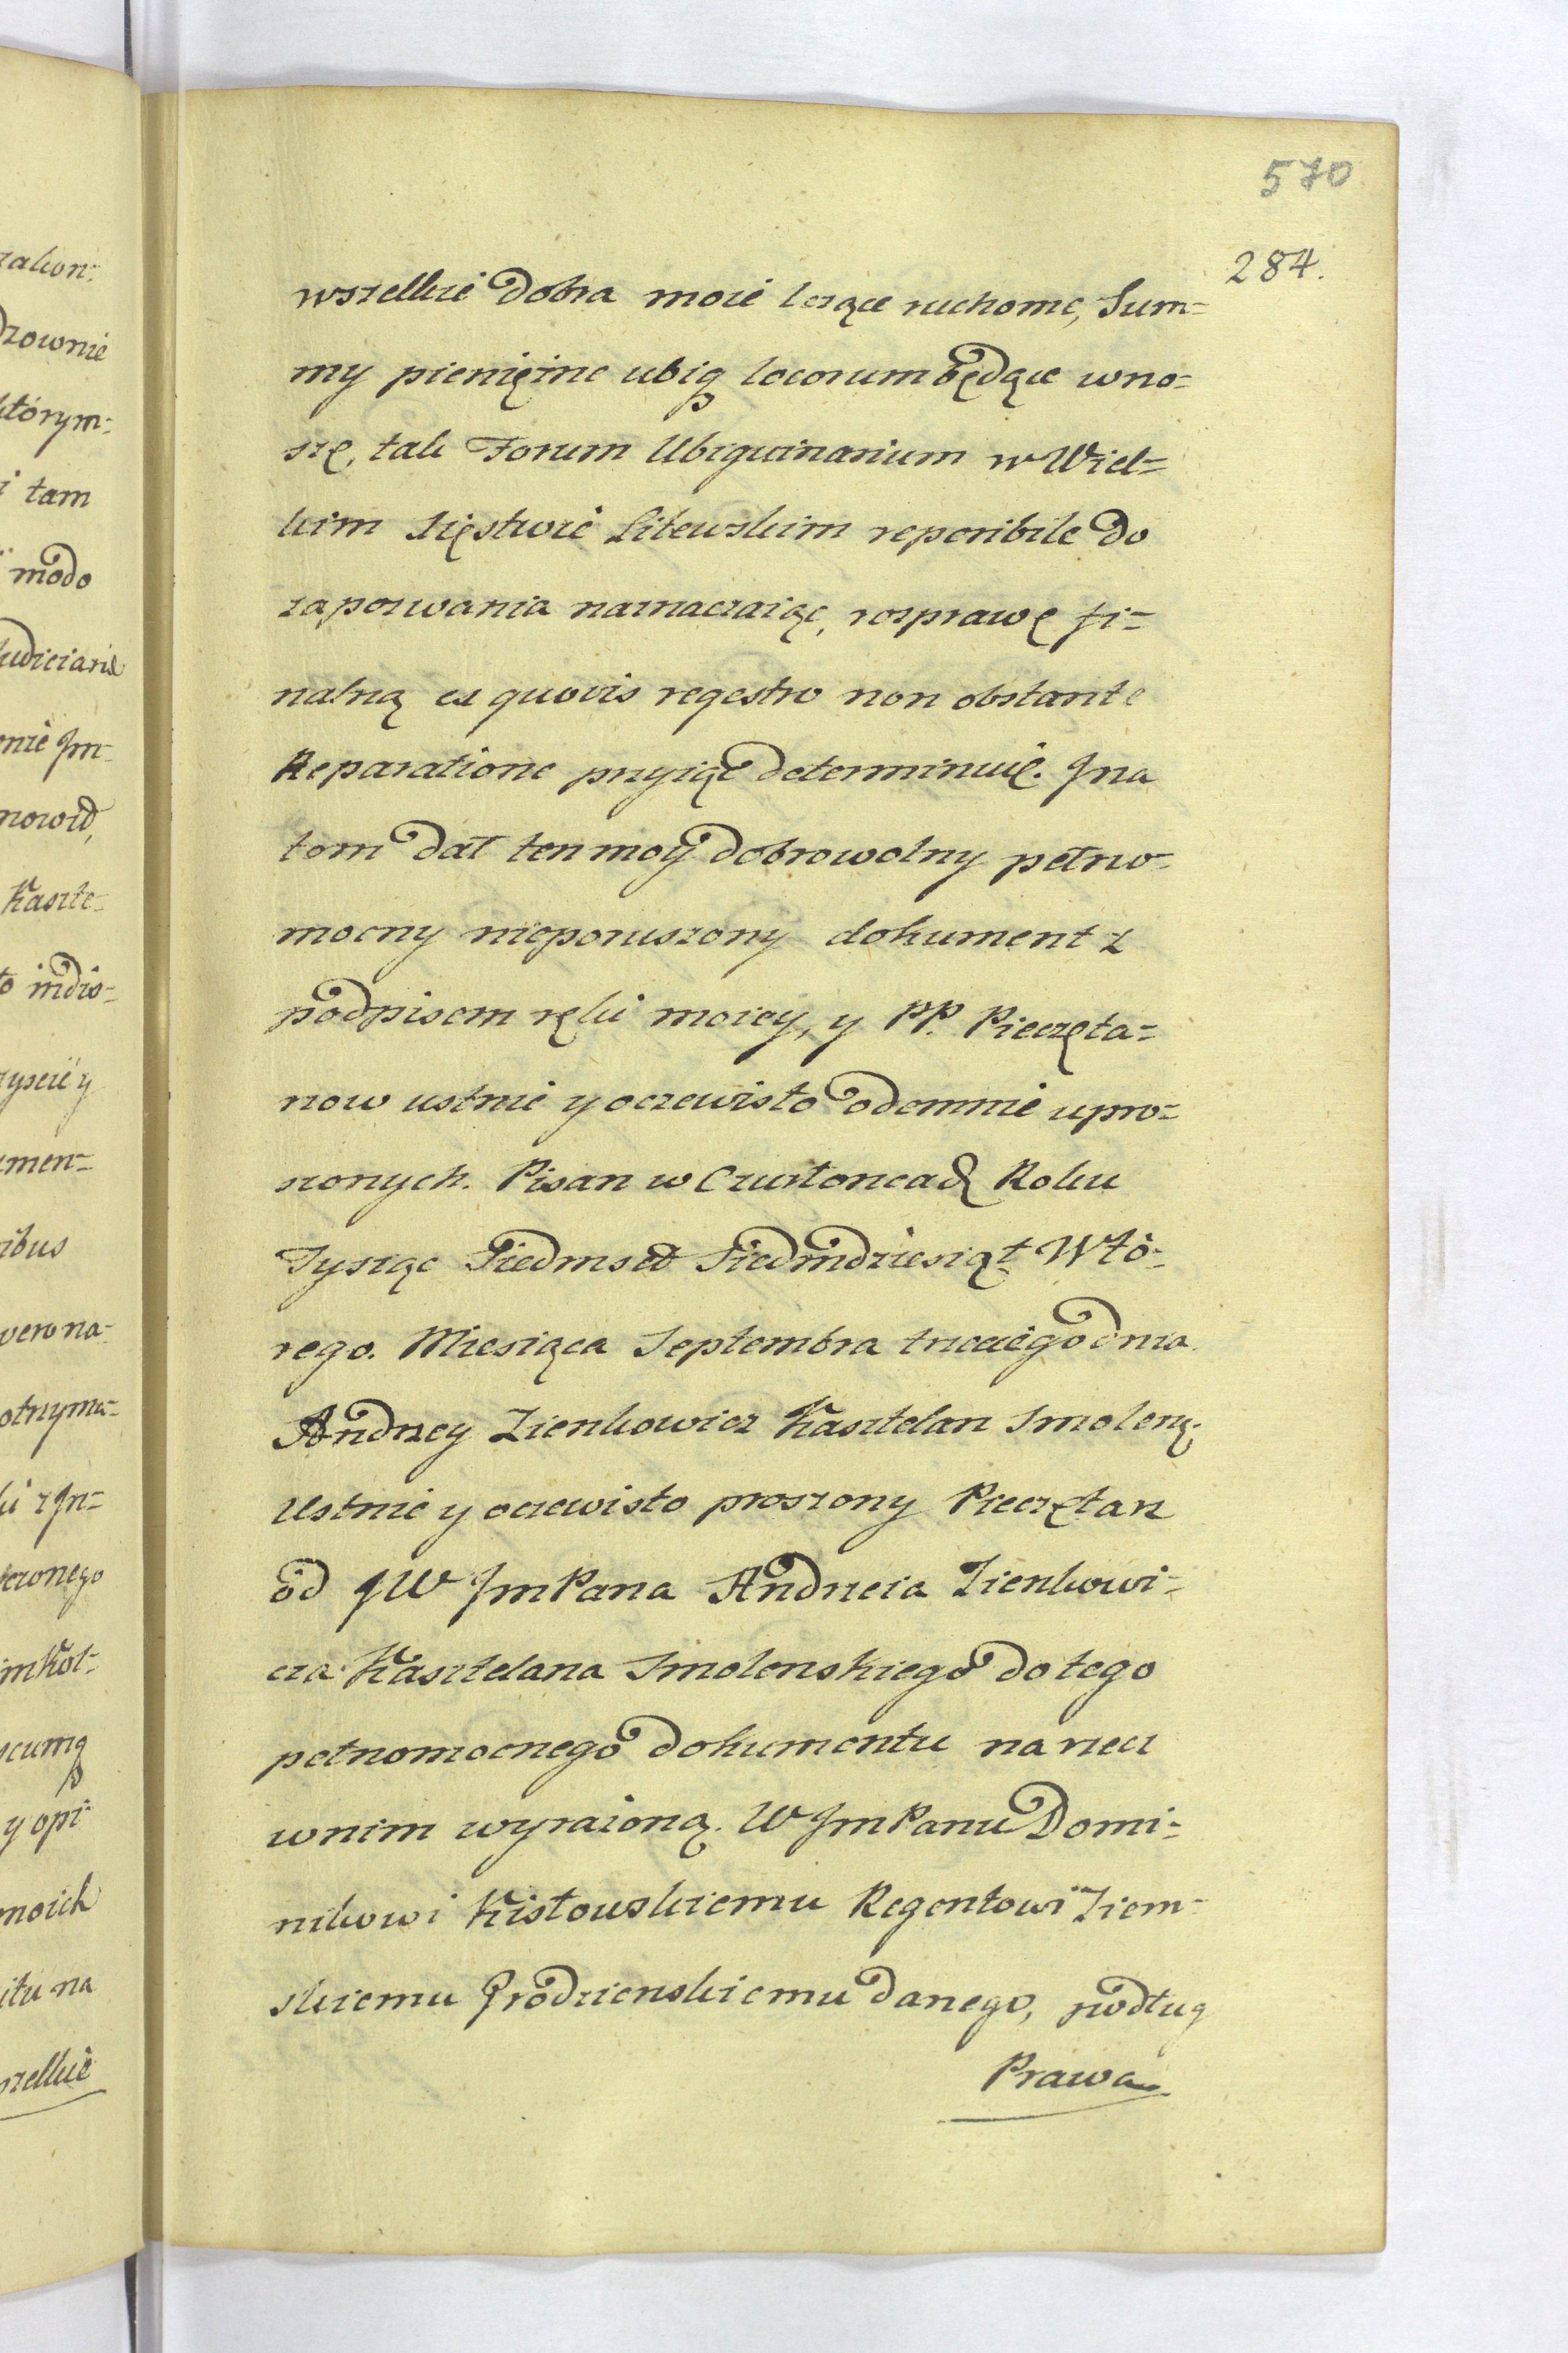 570
284.
wszelkie dobra moie lezące ruchome, Sum=
my pienięzne ubiq locorum będące wno=
szę, tak Forum Ubiquinarium w Wiel=
kim Xięstwie Litewskim reponibile do
zapozwania naznaczaiąc, rosprawę fi=
nalną ex quovis regestro non obstante
Reparatione przyiąć determinuię. Jna
tom dał ten moy dobrowolny pełno=
mocny nieporuszony dokument z
podpisem ręki moiey, y PP. Pieczęta=
rzow ustnie y oczewisto odemnie upro=
szonych. Pisan w Roku
Tysiąc Siedmset Siedmdziesiąt Wtó=
rego. Miesiąca Septembra trzeciego dnia.
Andrzey Zienkowicz Kasztelan Smolen.
Ustnie y oczewisto proszony Pieczętarz
od JW JmPana Andrzeia Zienkowi=
cza Kasztelana Smolenskiego do tego
pełnomocnego dokumentu na rzecz
wnim wyrazoną. W JmPanu Domi=
nikowi Kisłowskiemu Regentowi Ziem=
skiemu Grodzienskiemu danego, podług
Prawa
zakon=
dzownie
którym=
i tam
modo
Judiciarie
Jm=
Kaszte=
to indio=
y
umen=
ribus
vero na=
otrzyma=
ki z Jn=
y opi=
moich
itu na
szelkie